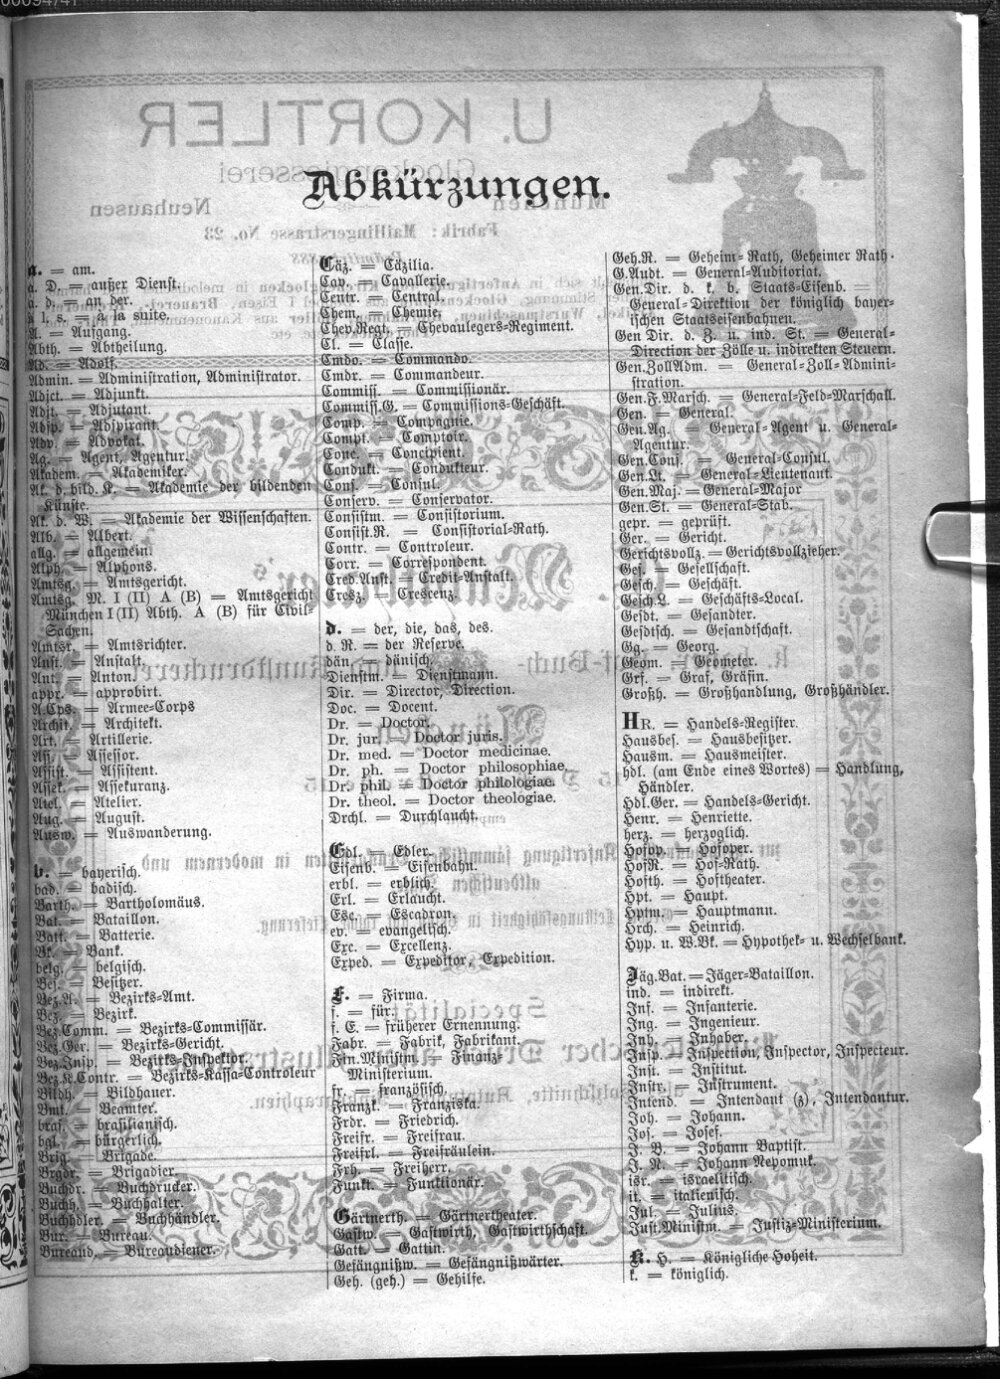 Abkürzungen.
a. = am.
a. D. = außer Dienst.
a. d. = an der.
à l. s. = à la suite.
A. = Aufgang.
Abth. = Abtheilung.
Ad. = Adolf.
Admin. = Administration, Administrator.
Adjct. = Adjunkt.
Adjt. = Adjutant.
Adsp. = Adspirant.
Adv. = Advokat.
Ag. = Agent, Agentur.
Akadem. = Akademiker.
Ak. d. bild. K. = Akademie der bildenden
Künste.
Ak. d. W. = Akademie der Wissenschaften.
Alb. = Albert.
allg. = allgemein.
Alph. = Alphons.
Amtsg. = Amtsgericht.
Amtsg. M. I (II) A (B) = Amtsgericht
München I (II) Abth. A (B) für Civil-
Sachen.
Amtsr. = Amtsrichter.
Anst. = Anstalt.
Ant. = Anton.
appr. = approbirt.
A.Cps. = Armee-Corps
Archit. = Architekt.
Art. = Artillerie.
Ass. = Assessor.
Assist. = Assistent.
Assek. = Assekuranz.
Atel. = Atelier.
Aug. = August.
Ausw. = Auswanderung.
b. = bayerisch.
bad. = badisch.
Barth. = Bartholomäus.
Bat. = Bataillon.
Batt. = Batterie.
Bk. = Bank.
belg. = belgisch.
Bes. = Besitzer.
Bez.A. = Bezirks-Amt.
Bez. = Bezirk.
Bez.Comm. = Bezirks-Commissär.
Bez.Ger. = Bezirks-Gericht.
Bez.Insp. = Bezirks-Inspektor.
Bez.K.Contr. = Bezirks-Kassa-Controleur
Bildh. = Bildhauer.
Bmt. = Beamter.
bras. = brasilianisch.
bgl. = bürgerlich.
Brig. = Brigade.
Brgdr. = Brigadier.
Buchdr. = Buchdrucker.
Buchh. = Buchhalter.
Buchhdler. = Buchhändler.
Bur. = Bureau.
Bureaud. = Bureaudiener.
Cäz. = Cäzilia.
Cav. = Cavallerie.
Centr. = Central.
Chem. = Chemie.
Chev.Regt. = Chevaulegers-Regiment.
Cl. = Classe.
Cmdo. = Commando.
Cmdr. = Commandeur.
Commiss. = Commissionär.
Commiss.G. = Commissions-Geschäft.
Comp. = Compagnie.
Compt. = Comptoir.
Conc. = Concipient.
Condukt. = Condukteur.
Cons. = Consul.
Conserv. = Conservator.
Consistm. = Consistorium.
Consist.R. = Consistorial-Rath.
Contr. = Controleur.
Corr. = Correspondent.
Cred.Anst. = Credit-Anstalt.
Cresz. = Crescenz.
d. = der, die, das, des.
d. R. = der Reserve.
dän. = dänisch.
Dienstm. = Dienstmann.
Dir. = Director, Direction.
Doc. = Docent.
Dr. = Doctor.
Dr. jur. = Doctor juris.
Dr. med. = Doctor medicinae.
Dr. ph. = Doctor philosophiae.
Dr. phil. = Doctor philologiae.
Dr. theol. = Doctor theologiae.
Drchl. = Durchlaucht.
Edl. = Edler.
Eisenb. = Eisenbahn.
erbl. = erblich.
Erl. = Erlaucht.
Esc. = Escadron.
ev. = evangelisch.
Exc. = Excellenz.
Exped. = Expeditor, Expedition.
F. = Firma.
f. = für.
f. E. = früherer Ernennung.
Fabr. = Fabrik, Fabrikant.
Fin.Ministm. = Finanz-
Ministerium.
fr. = französisch.
Franzk. = Franziska.
Frdr. = Friedrich.
Freifr. = Freifrau.
Freifrl. = Freifräulein.
Frh. = Freiherr.
Funkt. = Funktionär.
Gärtnerth. = Gärtnertheater.
Gastw. = Gastwirth, Gastwirthschaft.
Gatt. = Gattin.
Gefängnißw. = Gefängnißwärter.
Geh. (geh.) = Gehilfe.
Geh.R. = Geheim-Rath, Geheimer Rath.
G.Audt. = General-Auditoriat.
Gen.Dir. d. k. b. Staats-Eisenb. =
General-Direktion der königlich bayer-
ischen Staatseisenbahnen.
Gen Dir. d. Z. u. ind. St. = General-
Direction der Zölle u. indirekten Steuern.
Gen.ZollAdm. = General-Zoll-Admini-
stration.
Gen.F.Marsch. = General-Feld-Marschall.
Gen. = General.
Gen.Ag. = General-Agent u. General-
Agentur.
Gen.Cons. = General-Consul.
Gen.Lt. = General-Lieutenant.
Gen.Maj. = General-Major
Gen.St. = General-Stab.
gepr. = geprüft.
Ger. = Gericht.
Gerichtsvollz. = Gerichtsvollzieher.
Ges. = Gesellschaft.
Gesch. = Geschäft.
Gesch.L. = Geschäfts-Local.
Gesdt. = Gesandter.
Gesdtsch. = Gesandtschaft.
Gg. = Georg.
Geom. = Geometer.
Grf. = Graf, Gräfin.
Großh. = Großhandlung, Großhändler.
HR. = Handels-Register.
Hausbes. = Hausbesitzer.
Hausm. = Hausmeister.
hdl. (am Ende eines Wortes) = Handlung,
Händler.
Hdl.Ger. = Handels-Gericht.
Henr. = Henriette.
herz. = herzoglich.
Hofop. = Hofoper.
HofR. = Hof-Rath.
Hofth. = Hoftheater.
Hpt. = Haupt.
Hptm. = Hauptmann.
Hrch. = Heinrich.
Hyp. u. W.Bk. = Hypothek- u. Wechselbank.
Jäg.Bat. = Jäger-Bataillon.
ind. = indirekt.
Inf. = Infanterie.
Ing. = Ingenieur.
Inh. = Inhaber.
Insp. = Inspection, Inspector, Inspecteur.
Inst. = Institut.
Instr. = Instrument.
Intend. = Intendant (z), Intendantur.
Joh. = Johann.
Jos. = Josef.
J. B. = Johann Baptist.
J. N. = Johann Nepomuk.
isr. = israelitisch.
it. = italienisch.
Jul. = Julius.
Just.Ministm. = Justiz-Ministerium.
K. H. = Königliche Hoheit.
k. = königlich.